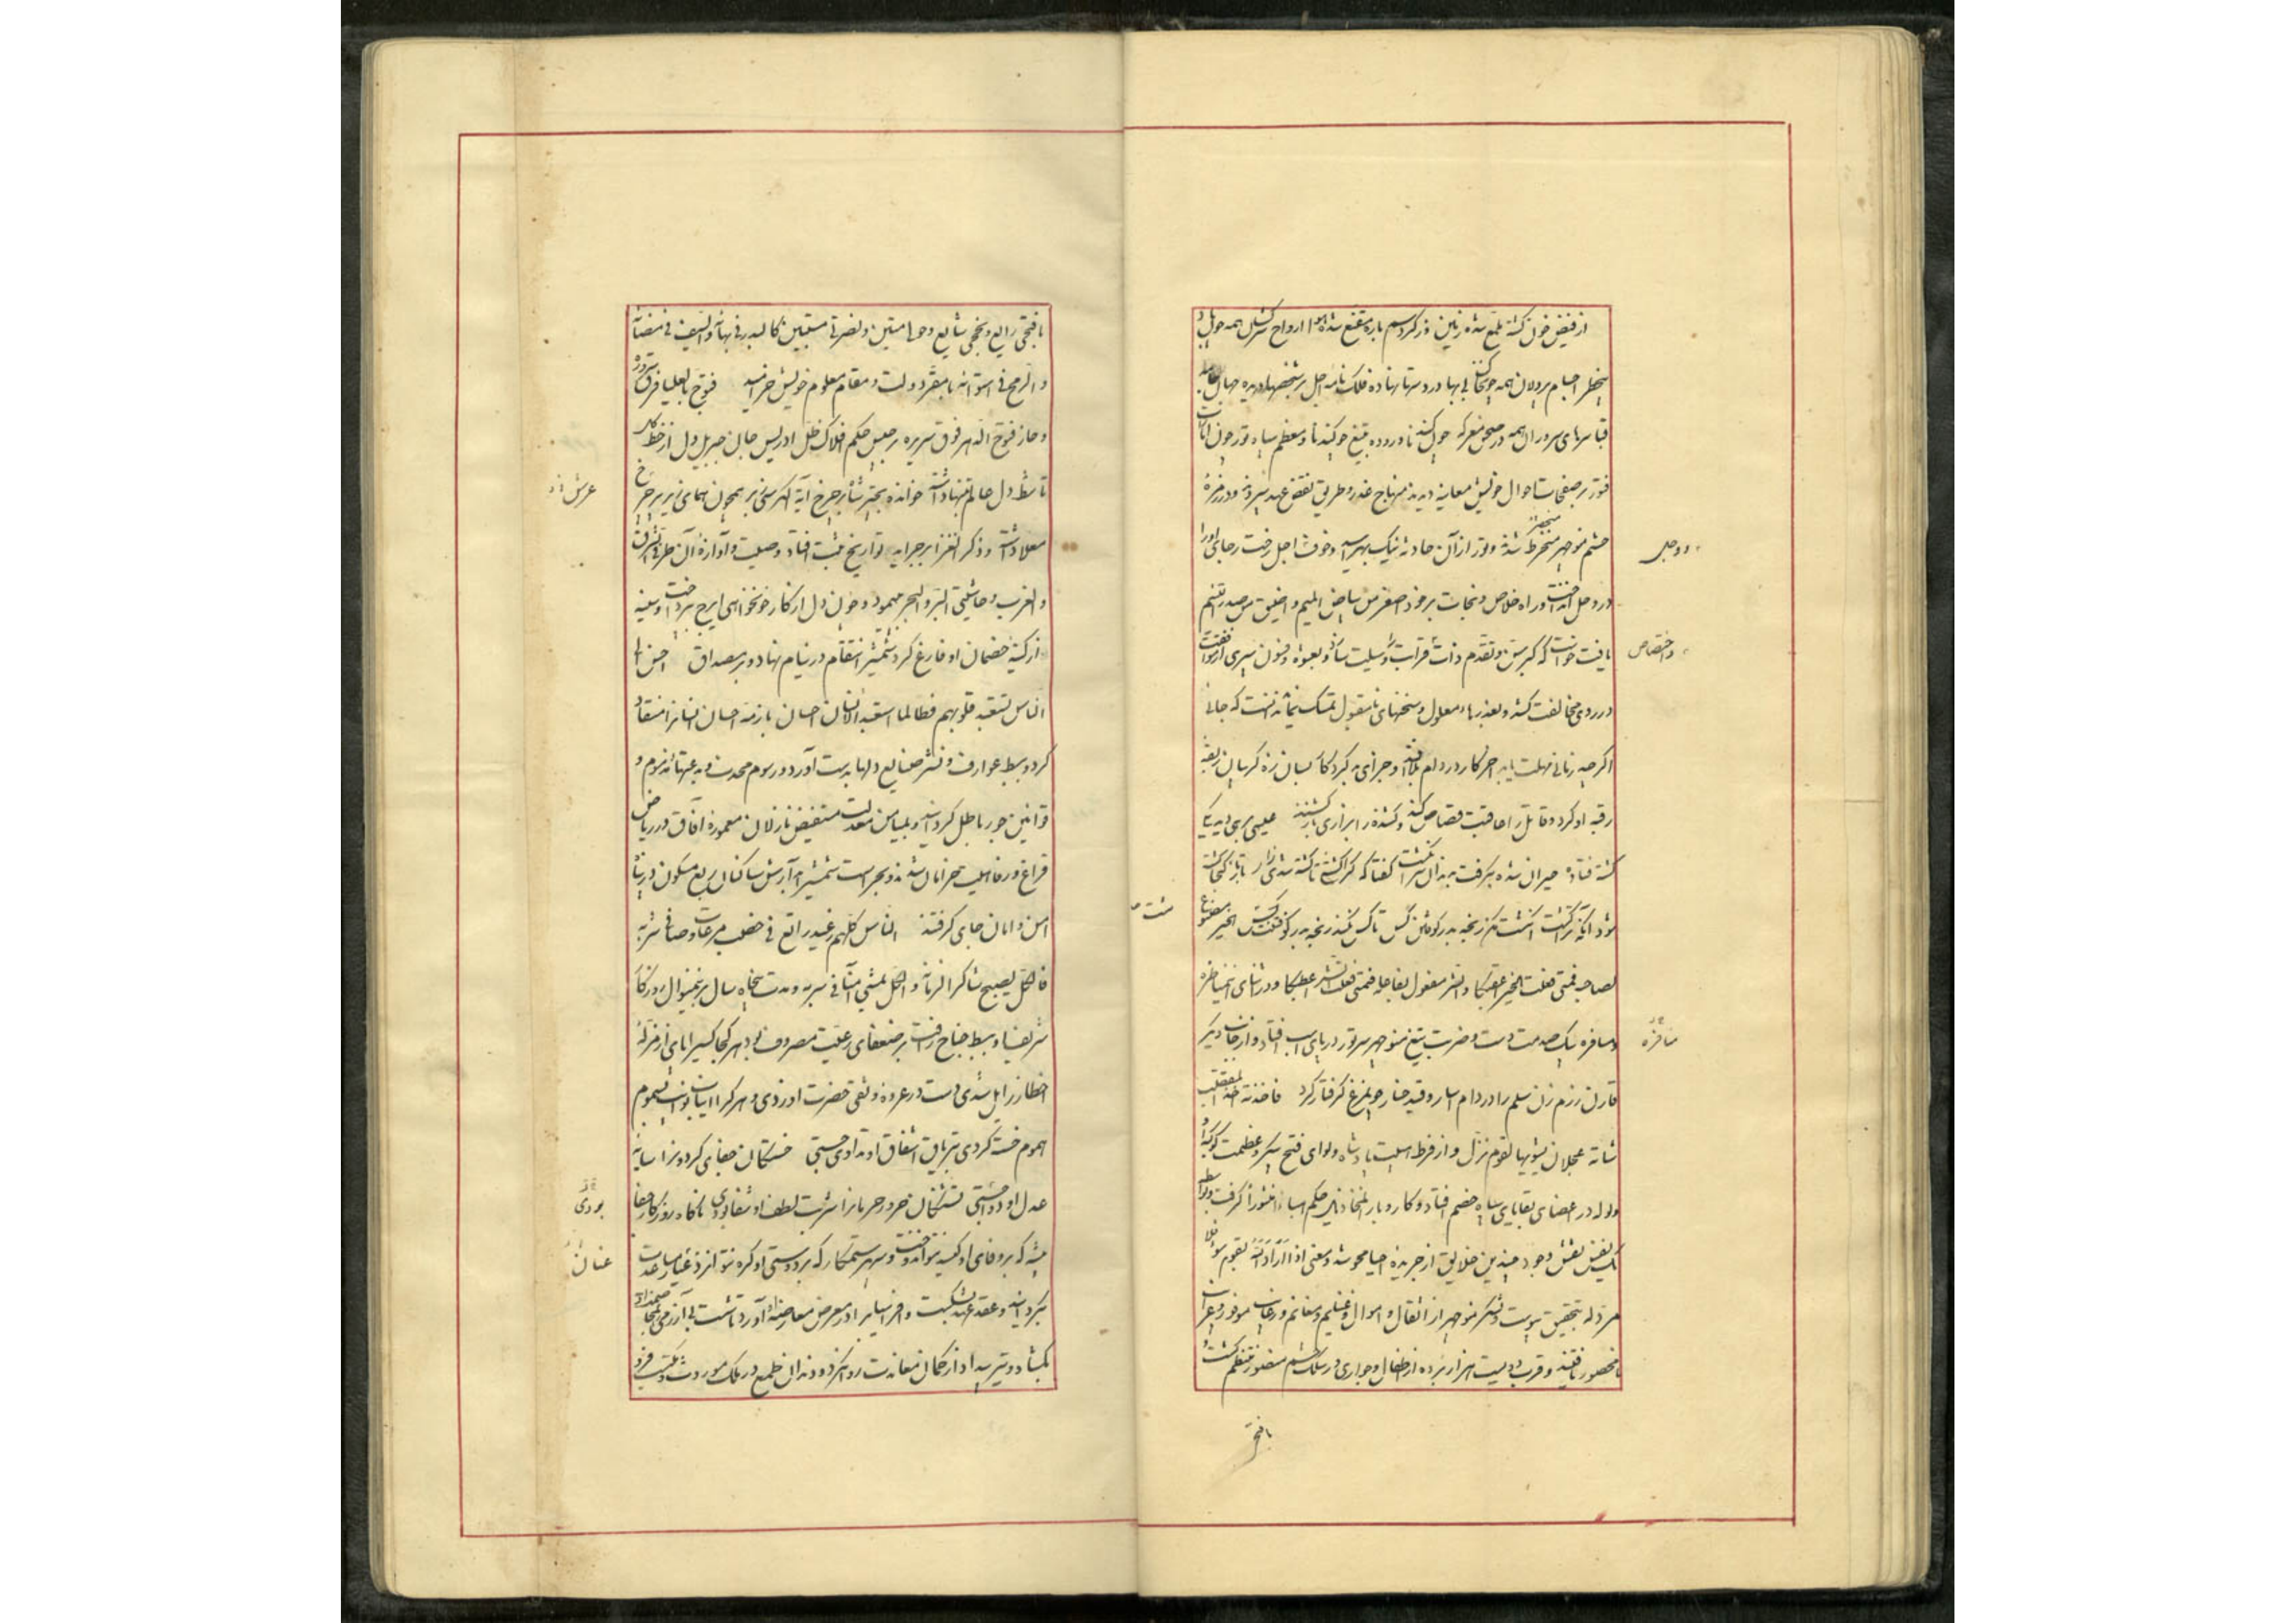 از فیض خون کشته ملمع شده زمین وز کرد سم باره مقنع شده هوا ارواح سرکشان همه چون باد
اجسام پردلان همه چون خاک بی بها در دستها نهاده فلک نامه اجل بر شخصها دریده جهان
قباء سرهای سروران همه در صحن معرکه چون کند نا دروده بتیغ چو کندنا و معظم سپاه تور چون امارات
فتور بر صفحات احوال خویش معاینه دیدند منهاج غدر و طریق نقض عهد سپردند و در زمره
حشم منوچهر منخرط شدند و تور از آن حادثه نیک بهراسید و خوف اجل رخت رجای او را
در وحل انداخت و راه خلاص و نجات بر خود اصغر من بیاض المیم و اضیق من صدر اللئیم
یافت خواست که کبر سن و تقدم ذات قرابت وسیلت سازد و بعشوه و فسون سپری
در روی مخالفت کشد و بعذرهاء معلول و سخنهای نامقبول تمسک نماید ندانست که جانی
اگر چه زمانی مهلت یابد آخر کار در دام بلا افتد و جزای بد کردگان بسان زه گریبان
رقبه او گردد و قاتل را عاقبت قصاص کنند و کشنده را بزاری باز کشند عیسی برهی دید یکی
کشته فتاده حیران شده بگرفت بدندان سر انگشت گفتا که کرا کشتی تا کشته شدی زار تا باز کجا کشته
شود آنکه ترا کشت انگشت مکن رنجه بدر کوفتن کس تا کس نکند رنجه بدر کوفتنت مشت الخیر مصنوع
لصاحبه فمتی فعلت الخیر اعقبکا والشر مفعول بفاعله فمتی فعلت الشر اعطبکا و در اثنای این مناظره
و مسافره بیک صدمت دست و ضربت تیغ منوچهر سر تور در پای اسب افتاد و از جانب دیگر
قارن رزم زن سلم را در دام اسار و قید خسار چو مرغ گرفتار کرد فاخذته اخذ المقصب
شاته عجلان یشویها لقوم نزل و از فرط هیبت پادشاه و لوای فتح پیکر و عظمت کوکبه او
ولوله در اعضای بقایای سپاه خصم افتاد و کار و بار مخاذیل حکم هباء منثورا گرفت
نقش وجود چندین خلایق از جریده احیا محو شد و معنی اذا اراد الله بقوم سوءا فلا
مرد له بتحقیق پیوست و لشکر منوچهر از اثقال و اموال و غنایم و مغانم و رغایب موفور
نامحصور یافتند و قرب دویست هزار برده از اطفال و جواری در سلک قسم منظم گشت
بافتح
و وجل
و اختصاص
مشت
مسافره
با فتحی رایع و نجحی شایع و حولی متین و نصرتی مستبین کالبدر فی بهائه والسیف فی مضائه
والرمح فی استوائه با مقر دولت و مقام معلوم خویش خرامید فتوح بالعلیا فرق سروره
و حاز فتوح الدهر فوق سریره برجیس حکم افلاک ظل ادریس جان جبریل دل از خط
تا شط دل عالم تنها داشته خوانده بچتر شاه بر چرخ آیة الکرسی ز بر همچون همای زیر پر چرخ
معلا داشته و ذکر اغر از بر جریده تواریخ مثبت افتاد و صیت و آوازه آن طرفی الشرق
والغرب و حاشیتی البر والبحر بپیمود و چون دل از کار خونخواهی ایرج بپرداخت و سینه
از کینه خصمان او فارغ کرد شمشیر انتقام در نیام نهاد و بر مصداق احسن الی
الناس تستعبد قلوبهم فطالما استعبد الانسان احسان بازمه احسان انسانرا منقاد
کرد و ببسط عوارف و نشر صنایع دلها بدست آورد و رسوم محدث و بدعتهاء مذموم و
قوانین جور باطل گردانید و بمیامن معدلت مستفیض نازلان معموره آفاق در ریاض
فراغ و رفاهیت خرامان شدند و بحراست شمشیر آبدارش ساکنان ربع مسکون در پناه
امن و امان جای گرفتند الناس کلهم بعید راتع فی خصب مرعاه و صافی شربه
فالکل یصبح شاکرا لزمانه والکل یمشی آمنا فی سربه و مدت پنجاه سال برین منوال روزگار
شریف او ببسط جناح رافت بر ضعفای رعیت مصروف بود هر کجا کسیرا پای از مزله
اخطار زایل شدی دست در عروه وثقی حضرت او زدی و هر کرا انیاب نوایب بسموم
هموم خسته کردی بتریاق اشفاق او تداوی جستی خستگان جفای گردونرا سایه
عدل او دوا جستی تشنگان حرور حرمانرا شربت لطف او شفا بودی ناگاه روزگار جفا
پیشه که بر وفای او کیسه نتوان دوخت و سپهر ستمکار که بر دوستی او تکیه نتوان زد عنان مساعدت
بگردانید و عقد عهد بشکست و افراسیاب را در معرض معارضه او آورد تا شست بی آزرمی
بگشاد و تیر بیداد از کمان معاندت روان کرد و دندان طمع در ملک موروث و مکتسب فرو
عرش
بودی
عنان